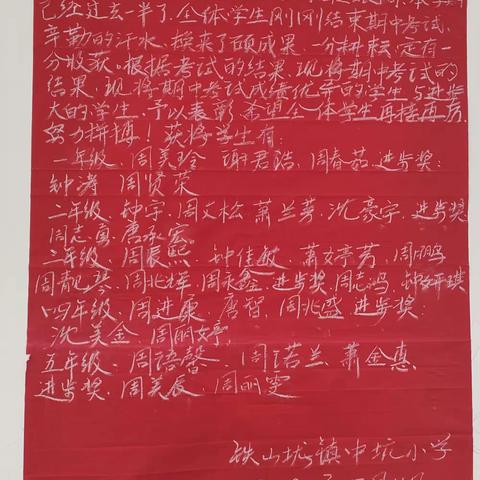 已经过去一半了.全体学生刚刚结束期中考试.
辛勤的汗水,换来了硕成果,一分耕耘,定有一
分收获.根据考试的结果.现将期中考试的
结果,现将期中考试成绩优秀的学生与进步
大的学生,予以表彰.希望全体学生再接再厉.
努力拼搏!获将学生有:
一年级、周美玲 谢君洁、周春茹.进步奖:
钟涛 周贤荣
二年级.钟宇.周文松 萧兰芳.沈豪宇.进步奖
周志真.唐承宏.
三年级.周辰熙、钟佳敏、萧婷芳、周鹏
周靓琴、周兆辉.周永鑫.进步奖.周志鸿.钟妍琪
四年级、周进康、唐智、周兆盛 进步奖:
沈美金、周丽婷,
五年级、周语馨、周若兰、萧金惠、
进步奖、周美辰、周丽雯
铁山垅镇中坑小学